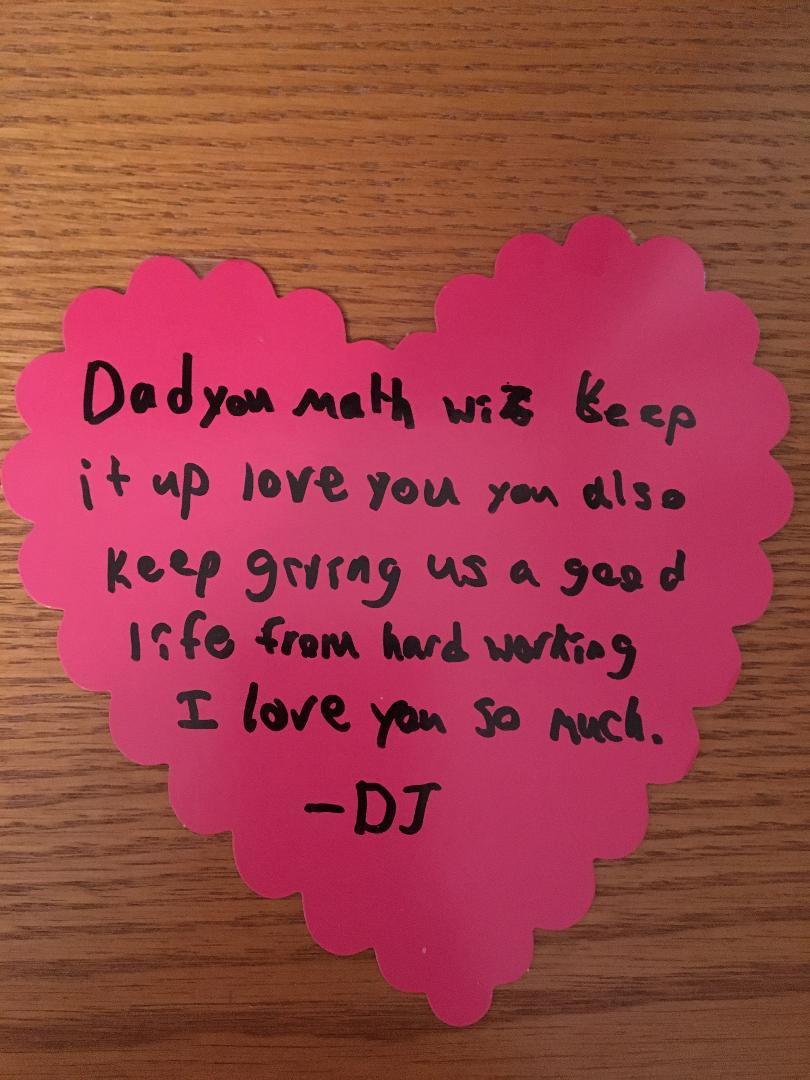 Dad you math wiz keep
it up love you you also
keep giving us a good
life from hard working
I love you so much.
-DJ